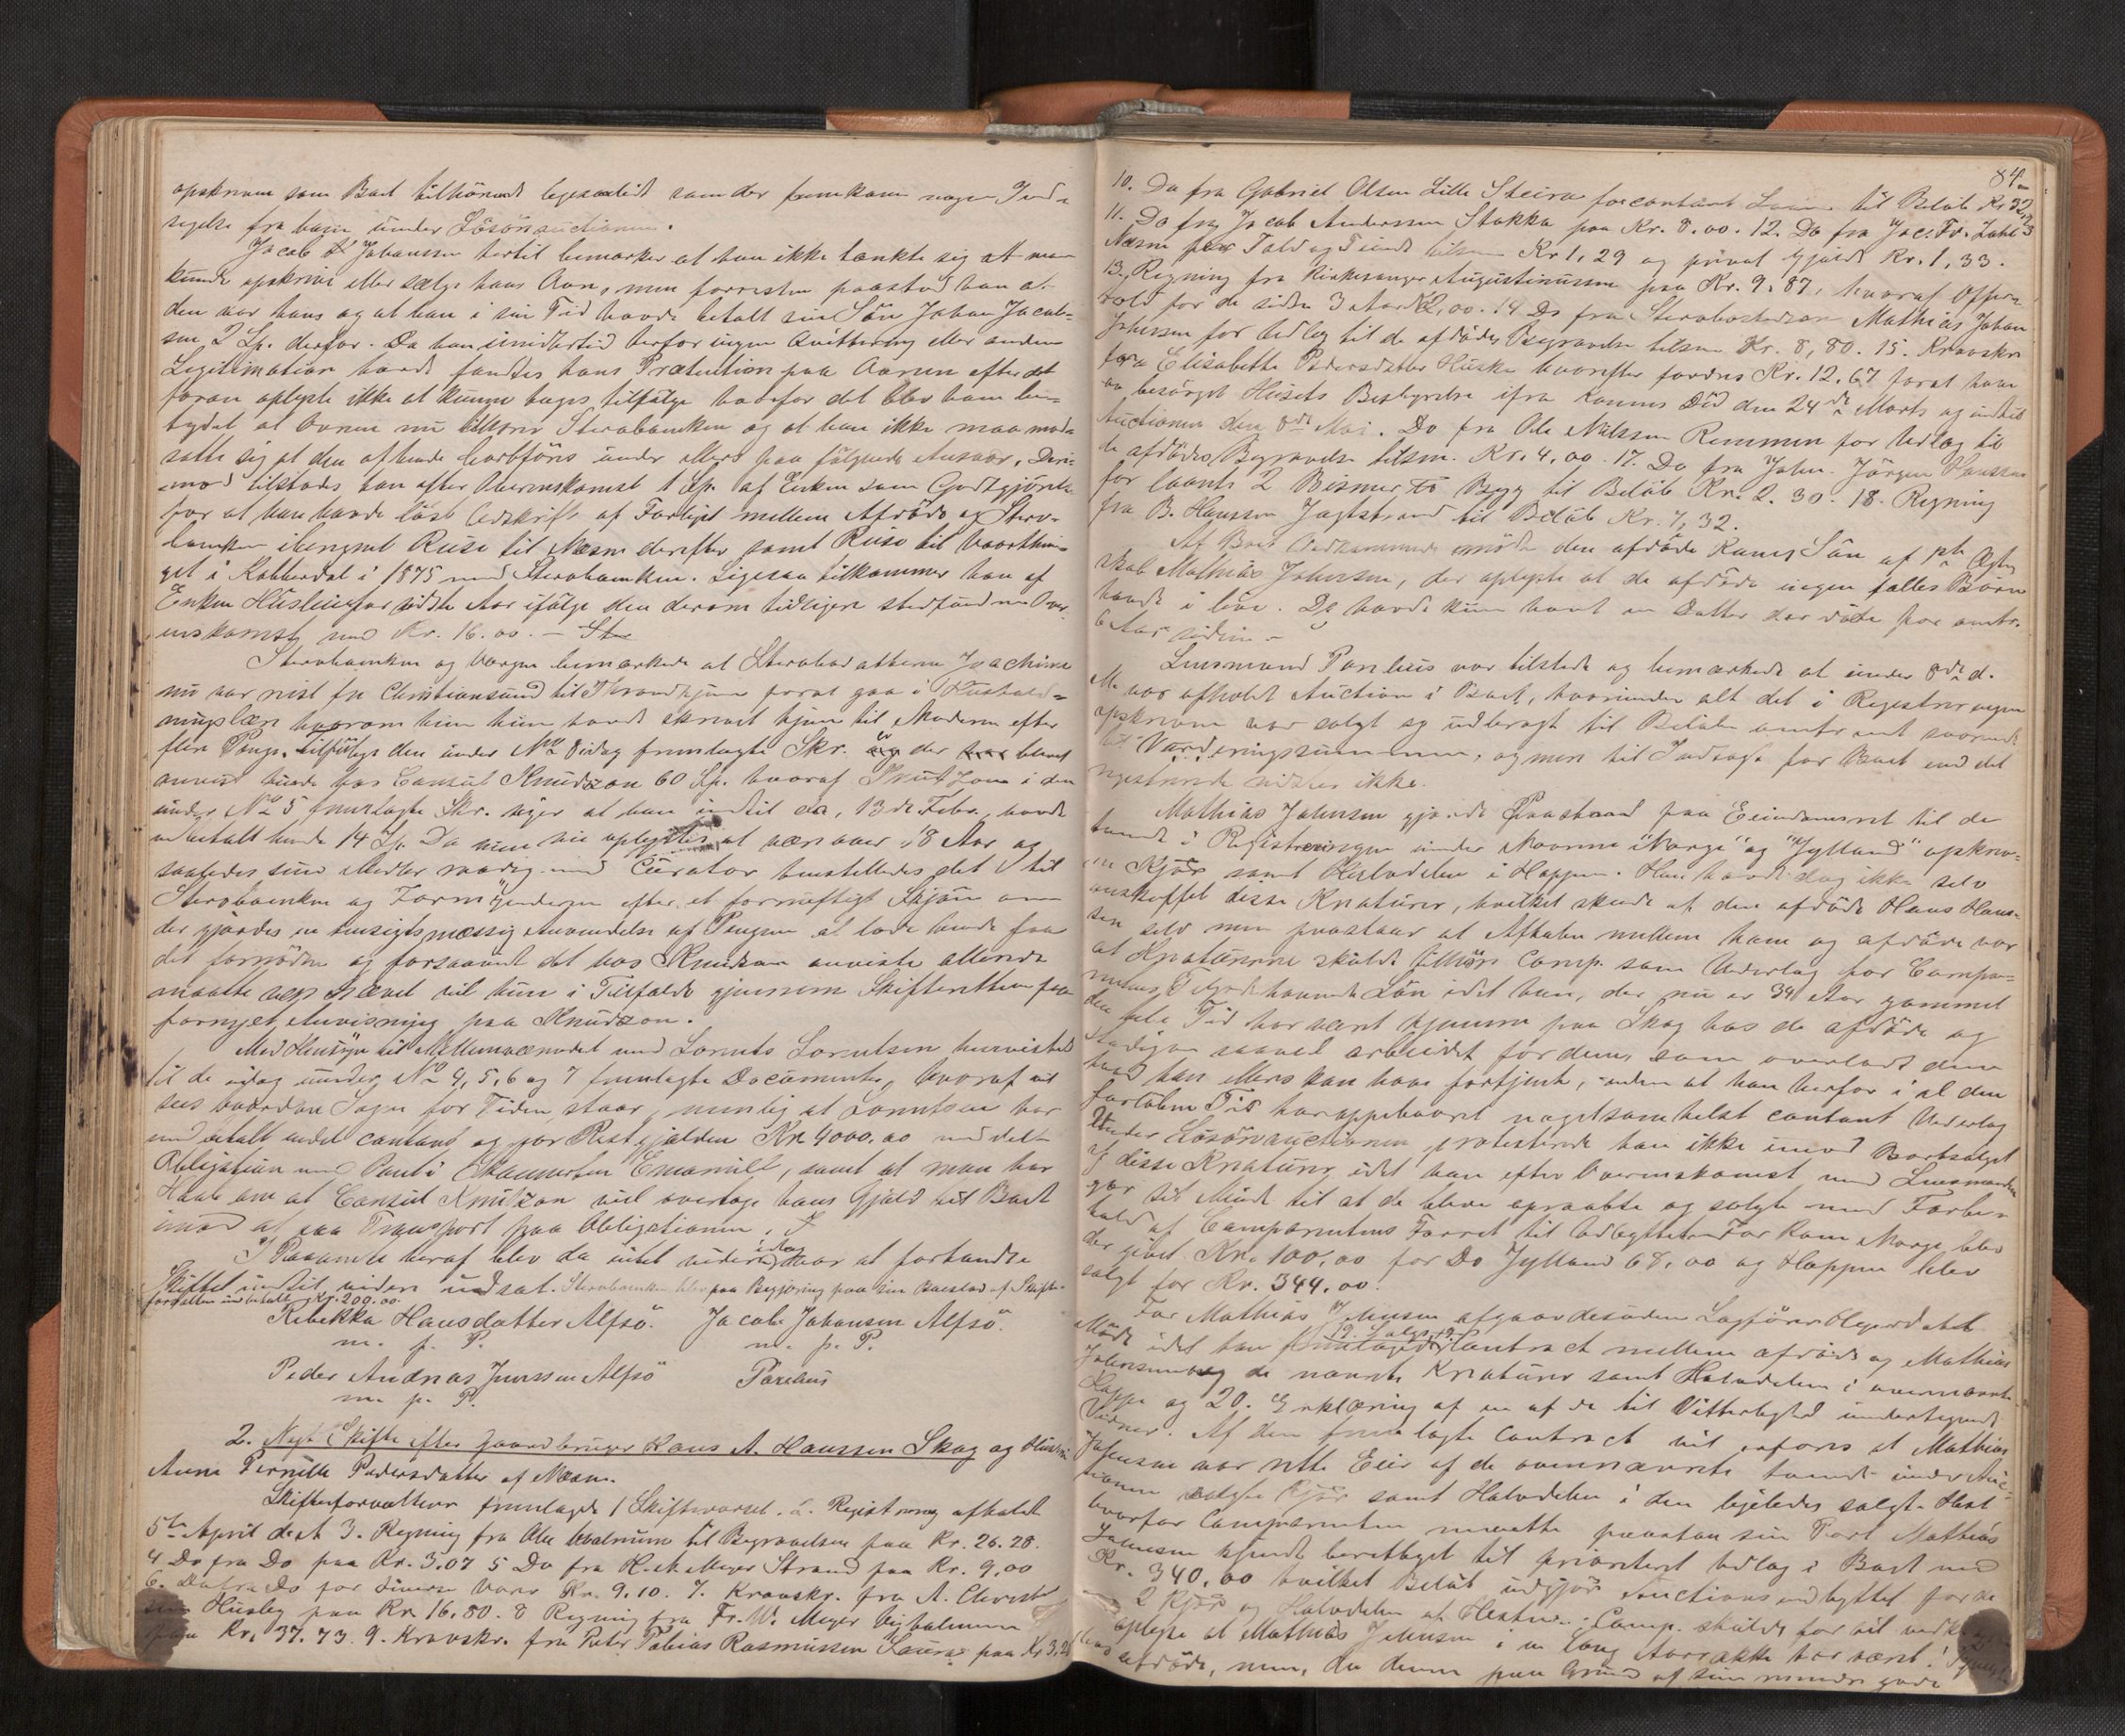 opskreven som Boet tilhörende ligesaalidt som der fremkom nogen Ind-
sigelse fra ham under Lösöreauctionen.
Jacob Johansen hertil bemærker at han ikke tænkte sig at man
kunde opskrive eller sælge hans Ovn, men forresten paastod han at
den var hans og at han i sin Tid havde betalt sin Sön Johan Jacob-
sen 2 Sp. derfor. Da han imidlertid herfor ingen Qvittering eller anden
Legitimation havde fandtes hans Prætention paa Ovnen efter det
foran oplyste ikke at kunne tages tilfölge hvorfor det blev ham be-
tydet at Ovnen nu tilhörer Stervboenken og at han ikke maa mod-
sætte sig at den af hende bortföres under ellers paa fölgende Ansvar. Deri-
mod tilstodes han efter Overenskomst 1 Sp. af Enken som Godtgjörelse
for at han havde löst Udskrift af Forliget mellem Afdöde og Sterv-
boenken ibergnet Reise til Næsne derefter samt Reise til Vaarthin-
get i Kobberdal i 1875 med Stervboenken. Ligesaa tilkommer han af
Enken Husleie for sidste Aar ifölge den derom tidligere stedfundne Over-
enskomst med Kr. 16.00. –
Stervboenken og Værgen bemærkede at Stervbodatteren Joachime
nu var reist fra Christiansund til Throndhjem forat gaa i Hushold-
ningslære hvorom hun havde skrevet hjem til Moderen efter
flere Penge. Tilfölge den under No 8 idag fremlagte Skr. er der blevet
anvist hende hos Consul Knudtzon 60 Sp. hvoraf Knudtzon i den
under No 5 fremlagte Skr. siger at han indtil da, 13de Febr. havde
udbetalt hende 14 Sp. Da hun nu oplystes at være over 18 Aar og
saaledes sine Midler raadig med Curator henstilledes det til
Stervboenken og Formynderen efter et fornuftigt Skjön om
der gjordes en hensigtsmæssig Anvendelse af Pengene at lade hende faa
det fornödne og forsaavidt det hos Knudtzon anviste allerede
maatte være hævet vil hun i Tilfælde gjennem Skifteretten faa
fornyet Anvisning paa Knudtzon.
Med Hensyn til Mellemværendet med Lornts Lorntsen henvistes
til de idag under No 4, 5, 6 og 7 fremlagte Documenter, hvoraf vil
sees hvordan Sagen for Tiden staar, nemlig at Lorntsen har
indbetalt endel contant og for Restgjælden Kr. 4000.00 meddelt
Obligation med Pant i Skonnerten Emanuel, samt at man har
Haab om at Consul Knudtzon vil overtage hans Gjæld til Boet
imod at faa Transport paa Obligationen.
I Paavente heraf blev da intet videre idag var at forhandle
Skiftet indtil videre udsat. Stervboenken blev paa Begjæring paa sin Boeslod af Skifte-
forvalteren indbetalt Kr. 200.00.
Rebekka Hansdatter Alfsö. Jacob Johansen Alfsö.
m. p. P. m. p. P.
Peder Andreas Jenssen Alfsö Parelius
m. p. P.
2. Nyt Skifte efter Gaardbruger Hans A. Hanssen Skog og Hustru
Anne Pernille Pedersdatter af Næsne.
Skifteforvalteren fremlagde 1 Skiftevarsel. 2. Registrering afholdt
5te April d.A. 3. Regning fra Ole Hvalnum til Begravelsen paa Kr. 26.28.
4 Do fra Do paa Kr. 3.07 5 Do fra H. M. Meyer Strand paa Kr. 9,00
6. Do fra Do for diverse Varer Kr. 9.10. 7. Kravskr. fra A. Christ
Husby paa Kr 16.80. 8 Regning fra Fr. W. Meyer Vigholmen
Kr. 37.73. 9. Kravskr. fra Peter Tobias Rasmussen Saura paa Kr 3,20
84.
10. Do fra Gabriel Olsen Lille Steira for contant Laan til Belöb Kr 32
11. Do fra Jacob Andersen Stokka paa Kr. 8.00. 12. Do fra Jac. Fr. Zahl
Næsne paa Told og Tiende tilsm Kr 1,29 og privat Gjæld Kr. 1,33.
13. Regning fra Kirkesanger Augustinussen paa Kr. 9.87, hvoraf Offer
told for de sidste 3 Aar Kr 2,00. 14 Do fra Stervbostedsön Mathias Johan
Johnsen for Udlæg til de afdödes Begravelse tilsm Kr. 8,80. 15. Kravskr
fra Elisabeth Pedersdatter Huske hvorefter fordres Kr. 12.67 forat have
besörget Husets Bestyrelse ifra Konens Död den 24de Marts og indtil
Auctionen den 8de Mai. Do fra Ole Nilssen Remmen for Udlæg til
de afdödes Begravelse tilsm. Kr. 4,00. 17. Do fra Johan Jörgen Hanssen
for laante 2 Bismer to Byg til Belöb Kr. 2.30. 18. Regning
fra B. Hanssen Jagtstrand til Belöb Kr. 7,32.
Af Boets Vedkommende mödte den afdöde Kones Sön af 1ste Ægte-
skab Mathias Johnsen, der oplyste at de afdöde ingen fælles Börn
havde i live. De havde kun havt en Datter der döde for omtr.
6 Aar siden. –
Lensmand Parelius var tilstede og bemærkede at under 8de d.
M. var afholdt Auction i Boet, hvorunder alt det i Registreringen
opskrevne var solgt og udbragt til Belöb omtrent svarende
til Vurderingssummen, og mere til Indtægt for Boet end det
registrerede vidstes ikke.
Mathias Johnsen gjorde Paastand paa Eiendomsret til de
tvende i Registreringen under Navnene "Norge" og "Jylland" opskrev-
ne Kjör samt Halvdelen i Hoppen. Han havde dog ikke selv
anskaffet disse Kreaturer, hvilket skede af den afdöde Hans Hans-
sen selv men paastaar at Aftalen mellem ham og afdöde var
at Kreaturerne skulde tilhöre Comp. som Vederlag for Compa-
rentens Tilgodehavende Lön idet han, der nu er 34 Aar gammel
den hele Tid har været hjemme paa Skog hos de afdöde og
stadigen saavel arbeidet for dem som overladt dem
hvad han ellers kan have fortjent, uden at han herfor i al den
forlöbne Tid har oppebaaret nogetsomhelst contant Vederlag
Under Lösöreauctionen protesterede han ikke imod Bortsalget
af disse Kreaturer idet han efter Overenskomst med Lensmanden
gav sit Minde til at de bleve opraabte og solgte med Forbe-
hold af Comparentens Forret til Udbyttet. For Koen Norge blev
der givet Kr. 100,00 for Do Jylland 68,00 og Hoppen blev
solgt for Kr. 344,00.
For Mathias Johnsen afgav desuden Lagförer Hegerdahl
Möde idet han fremlagde 19. Salgs Contract mellem afdöde og Mathias
Johnsen om de nævnte Kreaturer samt Halvdelen i ovennævnte
Hoppe og 20. Erklæring af en af de til Vitterlighed undertegnede
Vidner. Af den fremlagte Contract vil erfares at Mathias
Johnsen var rette Eier af de ovennævnte tvende under Auc-
tionen solgte Kjör samt Halvdelen i den ligeledes solgte Hest
hvorfor Comparenten maatte paastaa sin Part Mathias
Johnsen kjendt berettiget til prioriteret Udlæg i Boet med
Kr. 340,00 hvilket Belöb udgjör Auctionsudbyttet for de
2 Kjör og Halvdelen af Hesten. Comp. skulde forövrigt
oplyse at Mathias Johnsen i en lang Aarrække har været i Tjeneste
hos afdöde, men, da denne paa Grund af sine mindre gode